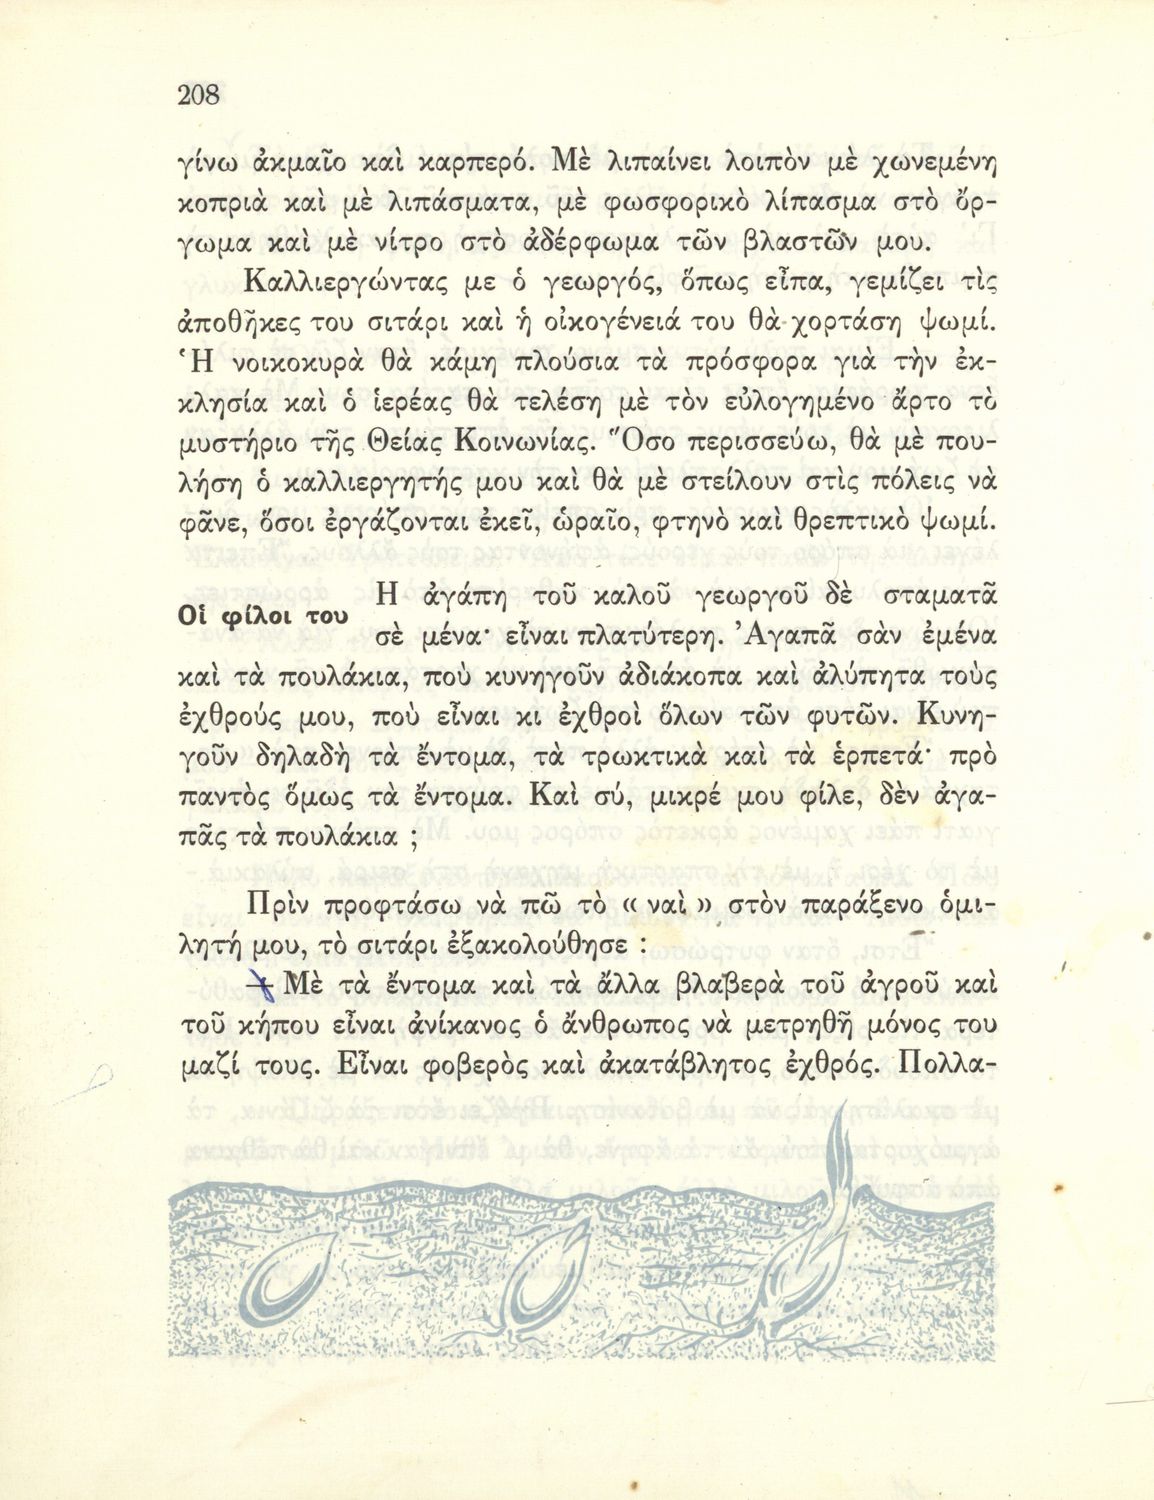 208
γίνω ἀκμαῖο καὶ καρπερό. Μὲ λιπαίνει λοιπὸν μὲ χωνεμένη
κοπριὰ καὶ μὲ λιπάσματα, μὲ φωσφορικὸ λίπασμα στὸ ὄρ-
γωμα καὶ μὲ νίτρο στὸ ἀδέρφωμα τῶν βλαστῶν μου.
Καλλιεργώντας με ὁ γεωργός, ὅπως εἶπα, γεμίζει τὶς
ἀποθῆκες του σιτάρι καὶ ἡ οἰκογένειά του θὰ χορτάση ψωμί.
Ἡ νοικοκυρὰ θὰ κάμη πλούσια τὰ πρόσφορα γιὰ τὴν ἐκ-
κλησία καὶ ὁ ἱερέας θὰ τελέση μὲ τὸν εὐλογημένο ἄρτο τὸ
μυστήριο τῆς Θείας Κοινωνίας. Ὅσο περισσεύω, θὰ μὲ που-
λήση ὁ καλλιεργητής μου καὶ θὰ μὲ στείλουν στὶς πόλεις νὰ
φᾶνε, ὅσοι ἐργάζονται ἐκεῖ, ὡραῖο, φτηνὸ καὶ θρεπτικὸ ψωμί.
Οἱ φίλοι του
Η ἀγάπη τοῦ καλοῦ γεωργοῦ δὲ σταματᾶ
σὲ μένα· εἶναι πλατύτερη. Ἀγαπᾶ σὰν ἐμένα
καὶ τὰ πουλάκια, ποὺ κυνηγοῦν ἀδιάκοπα καὶ ἀλύπητα τοὺς
ἐχθρούς μου, ποὺ εἶναι κι ἐχθροὶ ὅλων τῶν φυτῶν. Κυνη-
γοῦν δηλαδὴ τὰ ἔντομα, τὰ τρωκτικὰ καὶ τὰ ἑρπετά· πρὸ
παντὸς ὅμως τὰ ἔντομα. Καὶ σύ, μικρέ μου φίλε, δὲν ἀγα-
πᾶς τὰ πουλάκια ;
Πρὶν προφτάσω νὰ πῶ τὸ « ναὶ » στὸν παράξενο ὁμι-
λητή μου, τὸ σιτάρι ἐξακολούθησε :
— Μὲ τὰ ἔντομα καὶ τὰ ἄλλα βλαβερὰ τοῦ ἀγροῦ καὶ
τοῦ κήπου εἶναι ἀνίκανος ὁ ἄνθρωπος νὰ μετρηθῆ μόνος του
μαζί τους. Εἶναι φοβερὸς καὶ ἀκατάβλητος ἐχθρός. Πολλα-